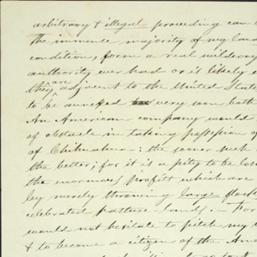 arbitrary & illegal proceeding can
the immense majority of my land
condition, form a real wilderness
authority ever had or is likely
they adjacent to the United States
to be annexed very soon
An American company would
of obstacle in taking possession of
of Chihuahua: the sooner such
the better; for it is a pity to be
the enormous profits which are
by merely throwing large flocks
celebrated pasture lands. For
would not hesitate to pitch my
& to become a citizen of the